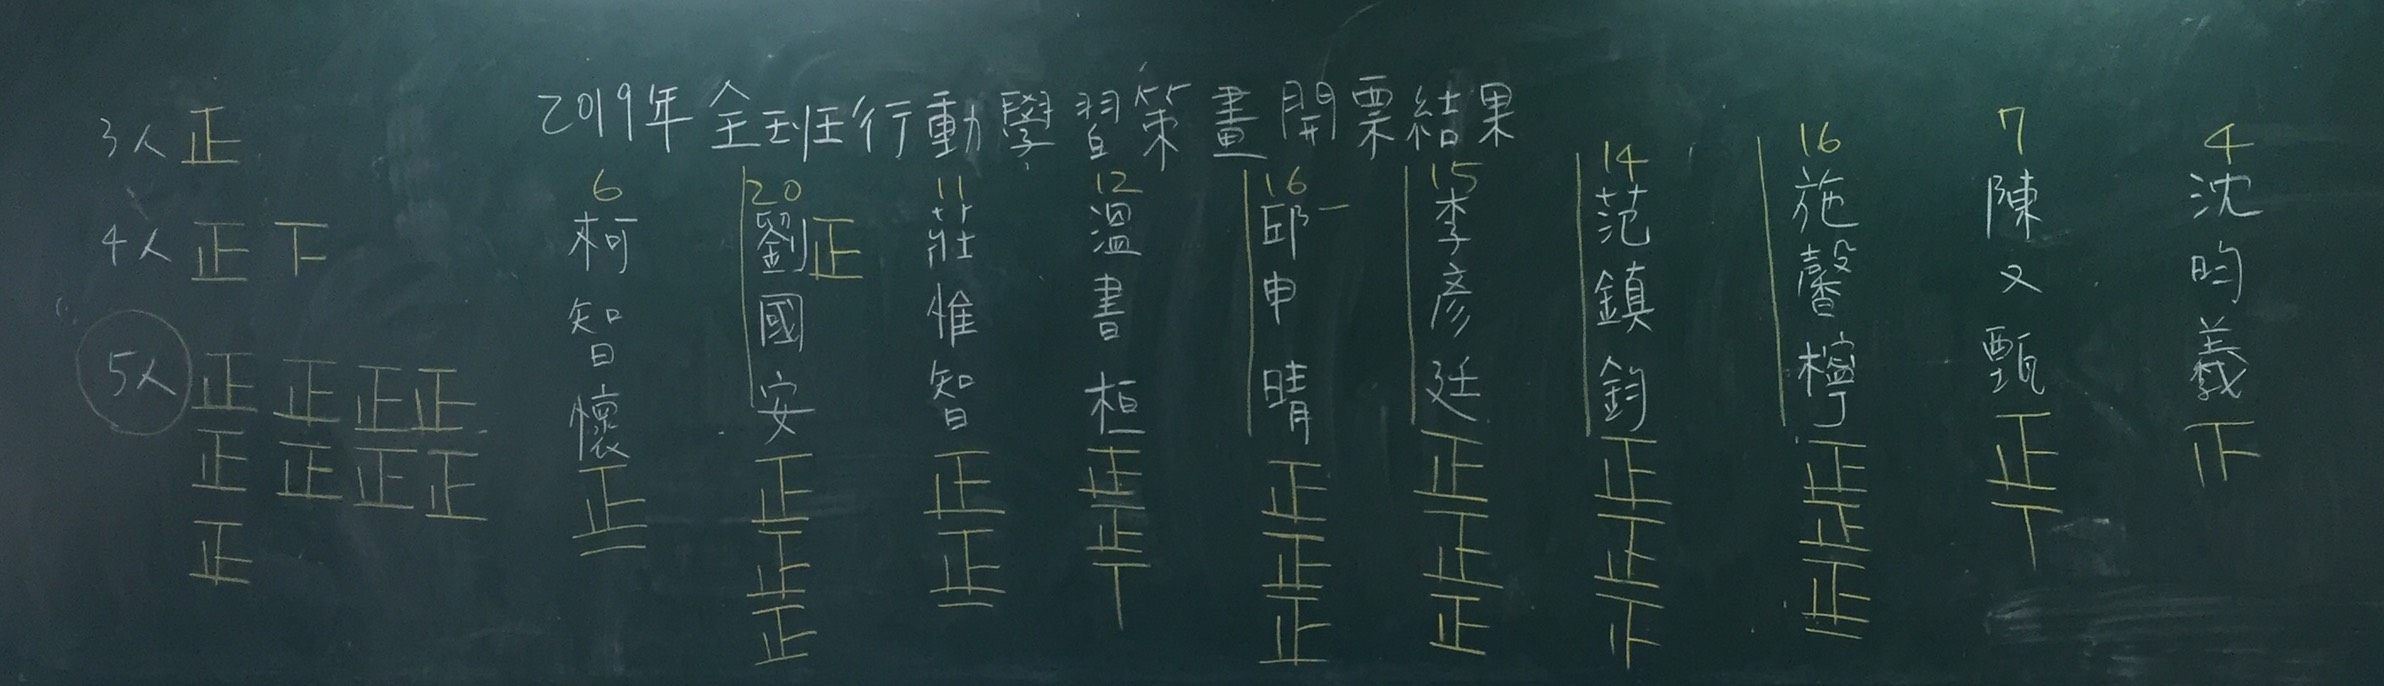 2019年全班行動學習策畫開票結果
3人 正
4人 正下
5人 正正正正
正正正正
正
6 柯智懷 正一
20 劉國安 正正正正
11 莊惟智 正正一
12 溫書桓 正正丅
16 邱申晴 正正正一
15 李彥廷 正正正
14 范鎮鈞 正正止
16 施馨檸 正正正一
7 陳又甄 正丅
4 沈昀義